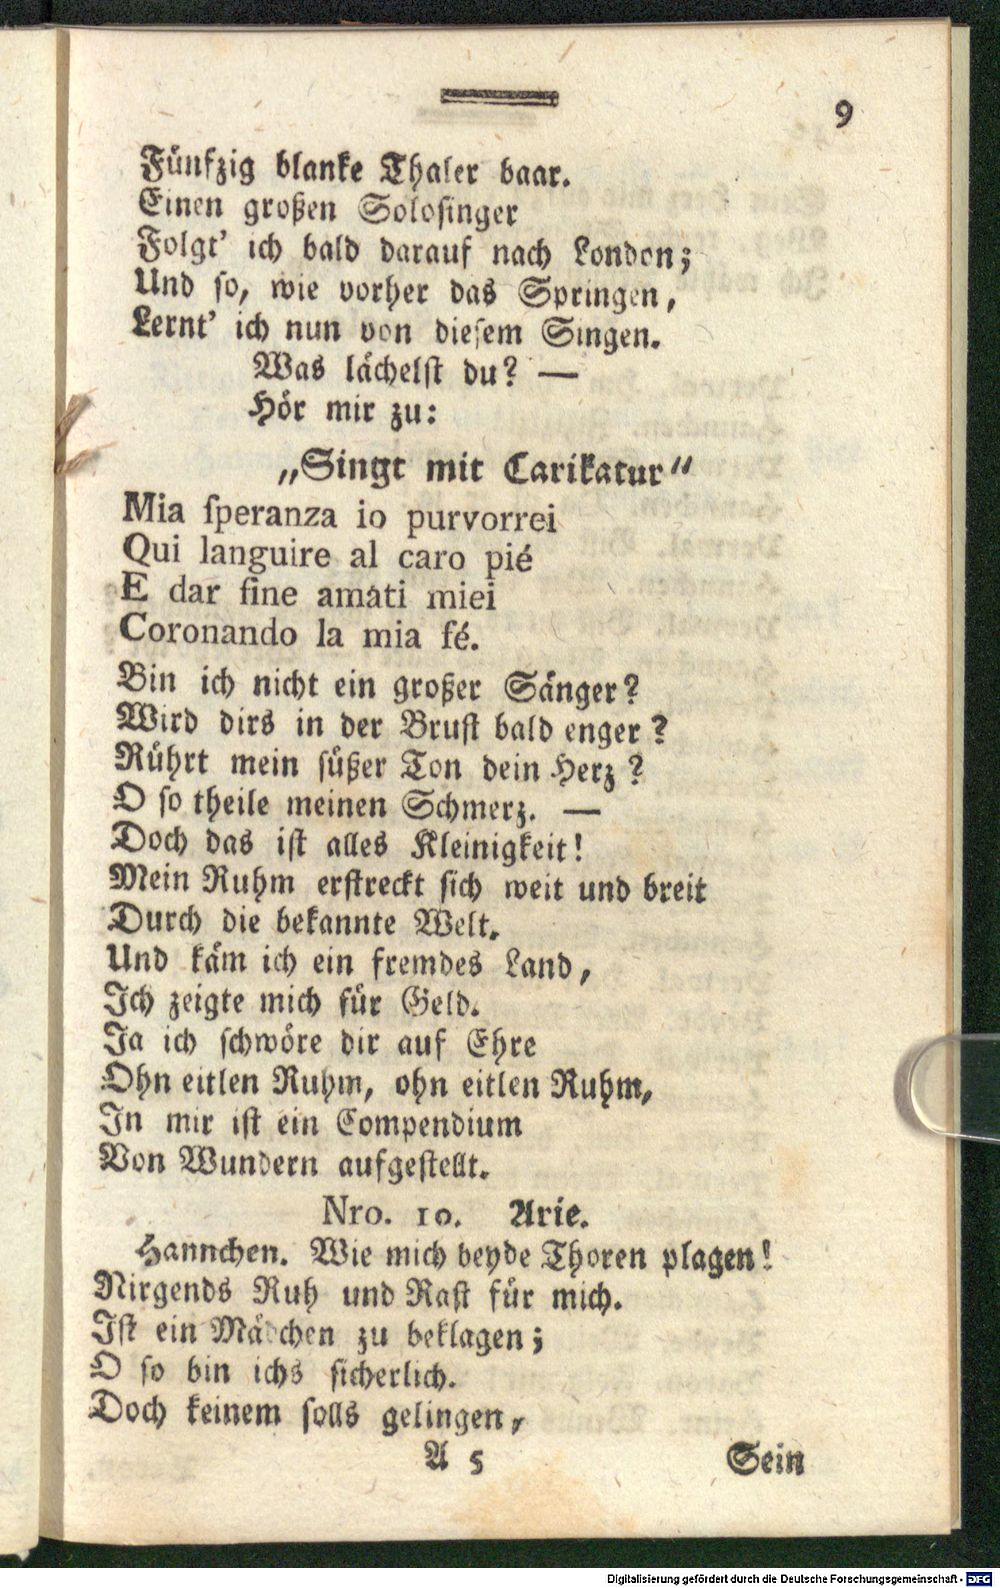 9
Fünfzig blanke Thaler baar.
Einen großen Solosinger
Folgt' ich bald darauf nach London;
Und so, wie vorher das Springen,
Lernt' ich nun von diesem Singen.
Was lächelst du? —
Hör mir zu:
„Singt mit Carikatur“
Mia speranza io purvorrei
Qui languire al caro pié
E dar fine amati miei
Coronando la mia fé.
Bin ich nicht ein großer Sänger?
Wird dirs in der Brust bald enger?
Rührt mein süßer Ton dein Herz?
O so theile meinen Schmerz. —
Doch das ist alles Kleinigkeit!
Mein Ruhm erstreckt sich weit und breit
Durch die bekannte Welt.
Und käm ich ein fremdes Land,
Ich zeigte mich für Geld.
Ja ich schwöre dir auf Ehre
Ohn eitlen Ruhm, ohn eitlen Ruhm,
In mir ist ein Compendium
Von Wundern aufgestellt.
Nro. 10. Arie.
Hannchen. Wie mich beyde Thoren plagen!
Nirgends Ruh und Rast für mich.
Ist ein Mädchen zu beklagen;
O so bin ichs sicherlich.
Doch keinem solls gelingen,
A 5 Sein
Digitalisierung gefördert durch die Deutsche Forschungsgemeinschaft - DFG